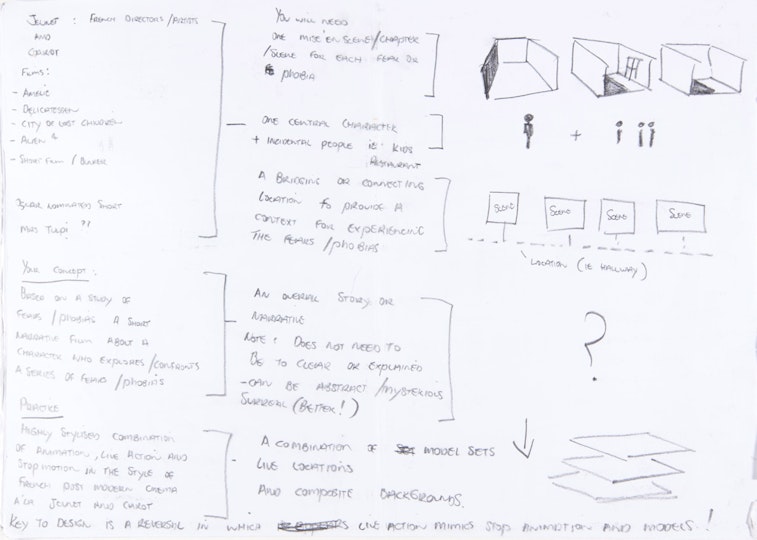 JEUNET : FRENCH DIRECTORS/ARTISTS
AND
CAROT
FILMS:
- AMELIE
- DELICATESSEN
- CITY OF LOST CHILDREN
- ALIEN 4
- SHORT FILM / BUNKER
OSCAR NOMINATED SHORT
MRS TULPI ??
YOUR CONCEPT:
BASED ON A STUDY OF
FEARS/PHOBIAS A SHORT
NARRATIVE FILM ABOUT A
CHARACTER WHO EXPLORES/CONFRONTS
A SERIES OF FEARS/PHOBIAS
PRACTICE
HIGHLY STYLISED COMBINATION
OF ANIMATION, LIVE ACTION AND
STOPMOTION IN THE STYLE OF
FRENCH POST MODERN CINEMA
A'LA JEUNET AND CAROT
YOU WILL NEED
ONE MISE EN SCENE/CHARACTER
/SCENE FOR EACH FEAR OR
PHOBIA
ONE CENTRAL CHARACTER
+ INCIDENTAL PEOPLE IE: KIDS
RESTAURANT
A BRIDGING OR CONNECTING
LOCATION TO PROVIDE A
CONTEXT FOR EXPERIENCING
THE FEARS/PHOBIAS
AN OVERALL STORY OR
NARRATIVE
NOTE: DOES NOT NEED TO
BE TO CLEAR OR EXPLAINED
- CAN BE ABSTRACT/MYSTERIOUS
SURREAL (BETTER!)
A COMBINATION OF MODEL SETS
LIVE LOCATIONS
AND COMPOSITE BACKGROUNDS.
+
SCENE SCENE SCENE SCENE
LOCATION (IE HALLWAY)
?
KEY TO DESIGN IS A REVERSAL IN WHICH LIVE ACTION MIMICS STOP ANIMATION AND MODELS!